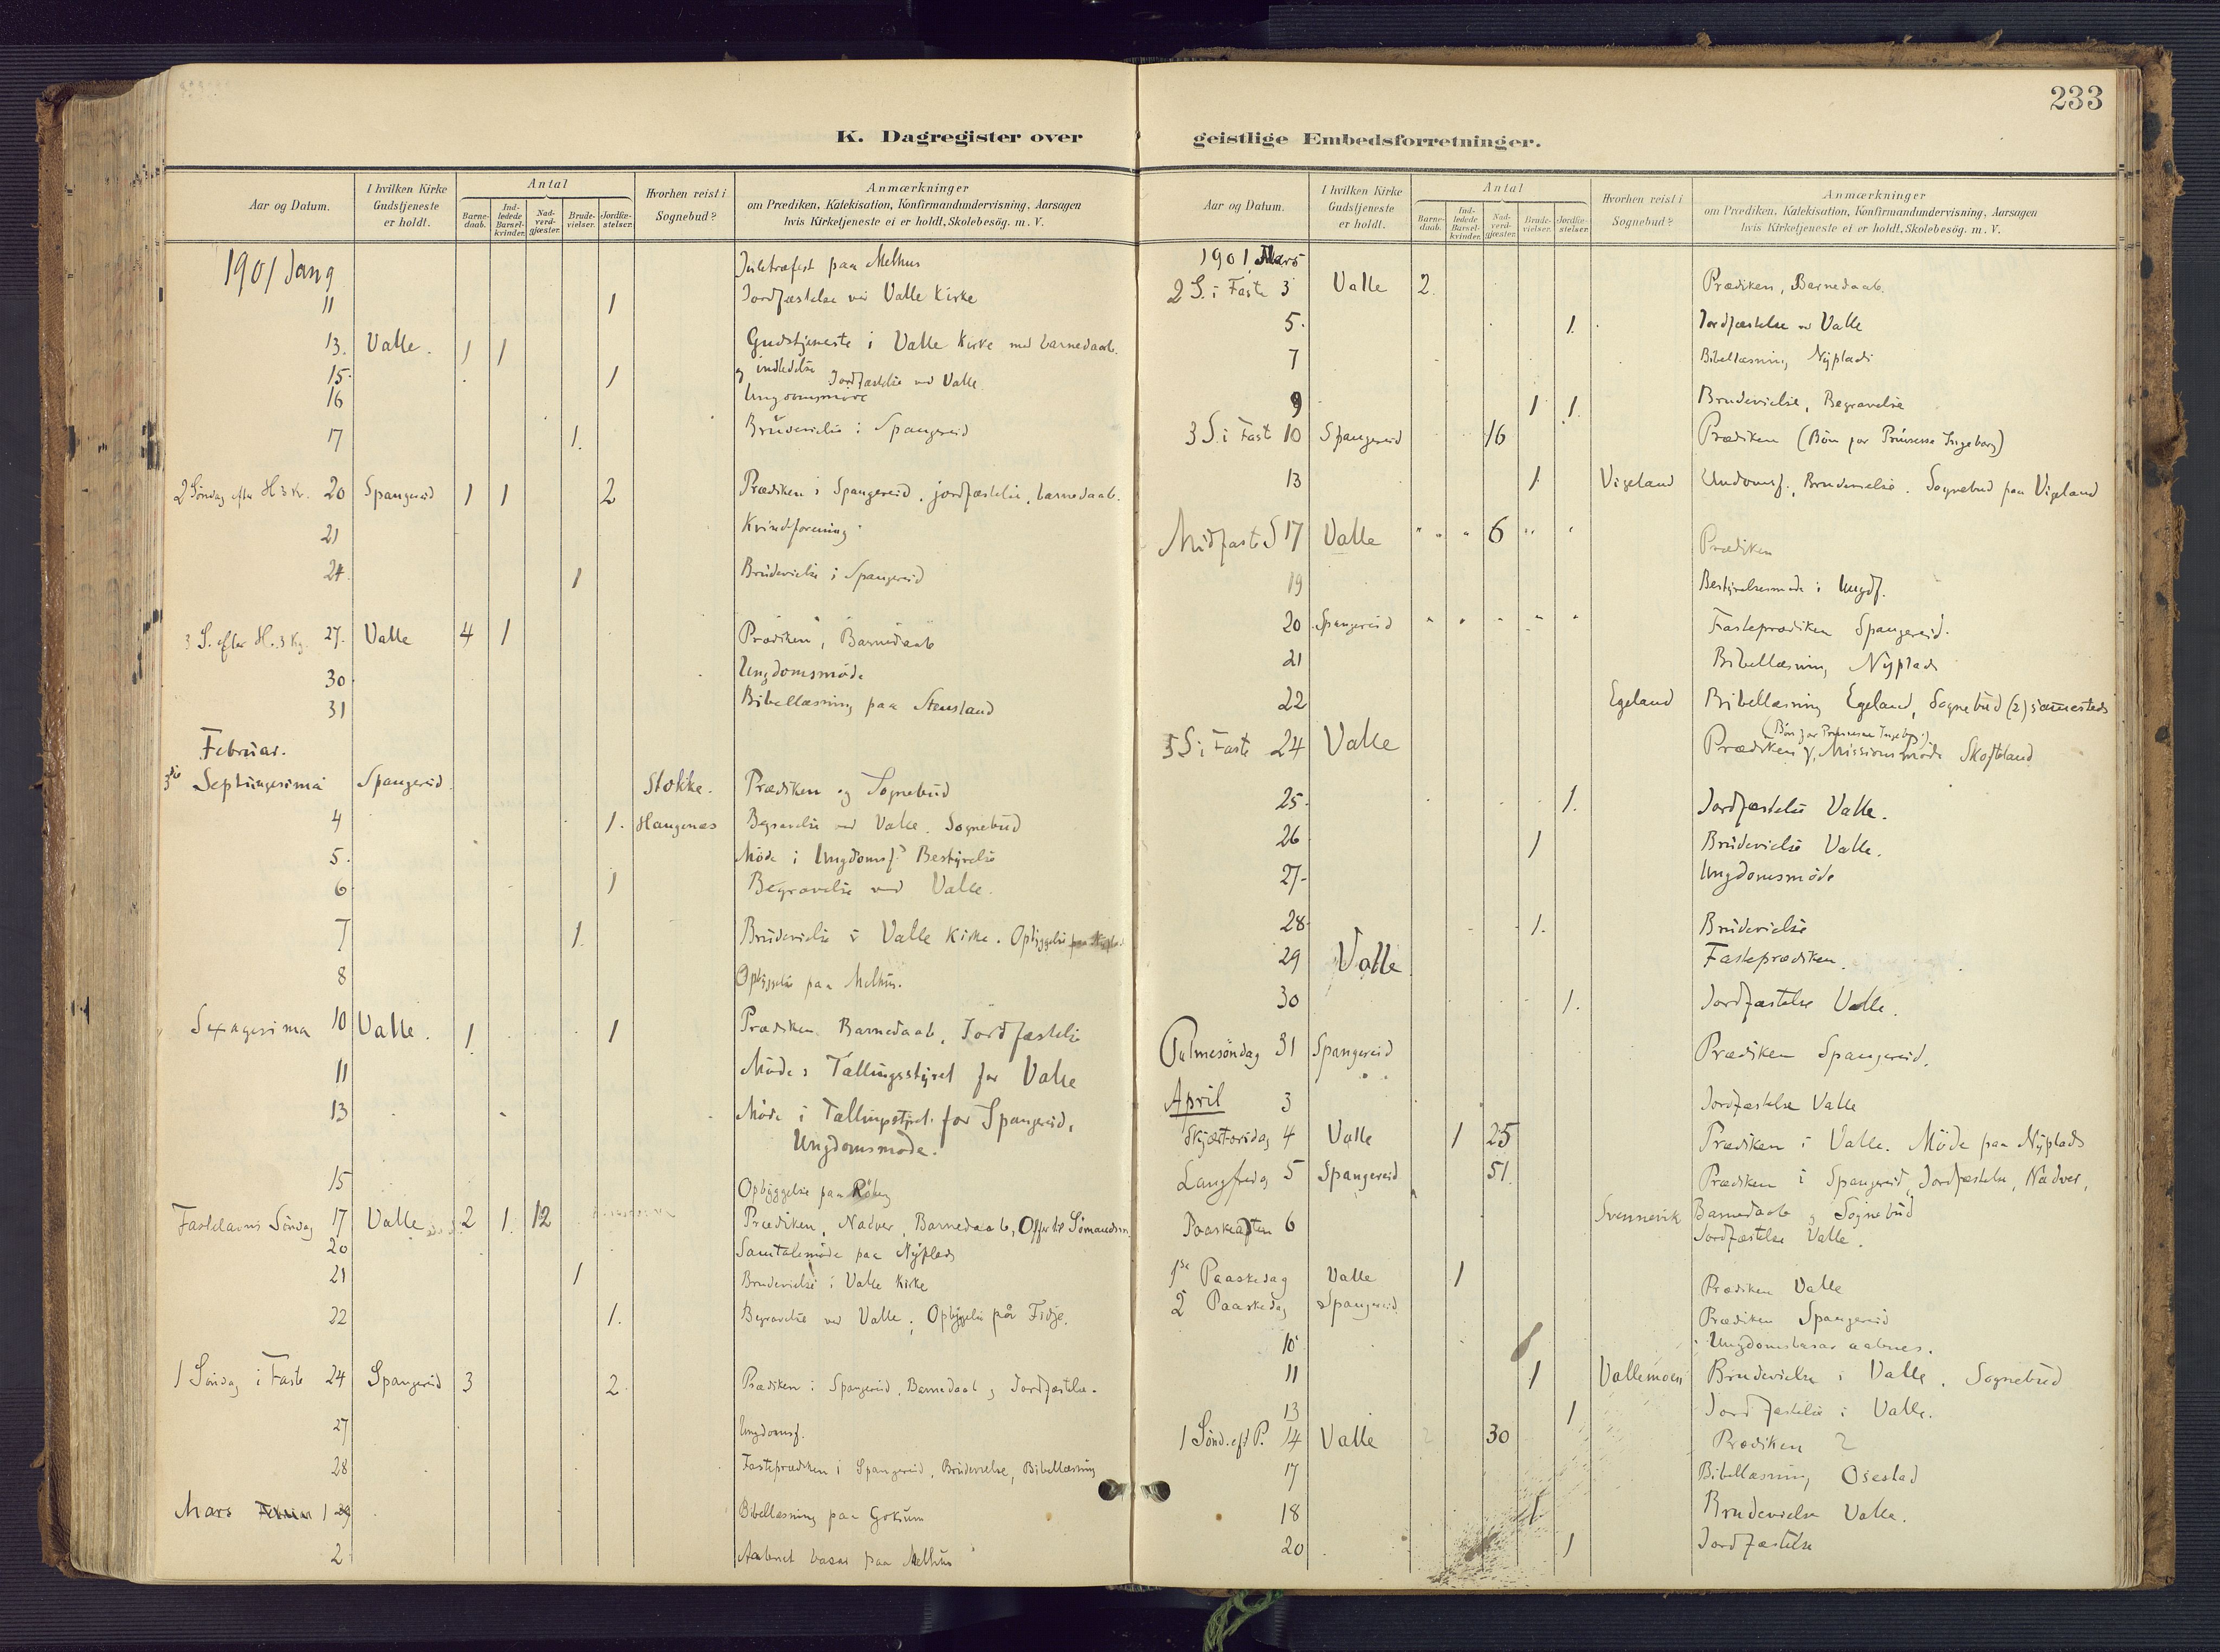 233
K. Dagregister over
Aar og Datum. I hvilken Kirke Gudstjeneste er holdt. Antal Barnedaab. Indledede Barselkvinder. Nadverdgjæster. Brudevielser. Jordfæstelser. Hvorhen reist i Sognebud? Anmærkninger om Prædiken, Katekisation, Konfirmandundervisning, Aarsagen hvis Kirketjeneste ei er holdt, Skolebesög. m. V.
1901 Jan 9 Juletræfest paa Melhus
11 1 Jordfæstelse ved Valle Kirke
13. Valle. 1 1 Gudstjeneste i Valle Kirke med barnedaab.
og indledelse
15. 1 Jordfæstelse ved Valle
16 Ungdomsmöde
17 1. Brudevielse i Spangereid
2 Söndag efter H 3 K. 20 Spangereid 1 1 2 Prædiken i Spangereid, jordfæstelse, barnedaab.
21 Kvindeforening
24. 1 Brudevielse i Spangereid
3 S. efter H. 3 Kg. 27. Valle 4 1 Prædiken, Barnedaab
30 Ungdomsmöde
31 Bibellæsning paa Stensland
Februar.
3die Septuagesima Spangereid. Stokke. Prædiken og Sognebud
4 1. Haugenæs Begravelse ved Valle. Sognebud
5. Möde i Ungdomsf. Bestyrelse
6 1 Begravelse ved Valle.
7 1. Brudevielse i Valle Kirke. Opbyggelse
8 Opbyggelse paa Melhus.
Sexagesima 10 Valle. 1. 1 Prædiken Barnedaab, Jordfæstelse
11 Möde i Tællingsstyret for Valle
13 Möde i Tællingsstyret for Spangereid,
Ungdomsmöde.
15 Opbyggelse paa
Fastelavns Söndag 17 Valle 2 1. 12 Prædiken, Nadver, Barnedaab, Offer til Sömandsm.
20 Samtalemöde paa Nyplads
21 1 Brudevielse i Valle Kirke
22 1. Begravelse ved Valle; Opbyggelse paa Fidje.
1 Söndag i Faste 24 Spangereid 3 2. Prædiken i Spangereid, Barnedaab og Jordfæstelse.
27 Ungdomsf.
28 Fasteprædiken i Spangereid, Brudevielse, Bibellæsning
Mars Februar 1 29 Bibellæsning paa Goksum
2 Aabnet basar paa Melhus
geistlige Embedsforretninger.
Aar og Datum. I hvilken Kirke Gudstjeneste er holdt. Antal Barnedaab. Indledede Barselkvinder. Nadverdgjæster. Brudevielser. Jordfæstelser. Hvorhen reist i Sognebud? Anmærkninger om Prædiken, Katekisation, Konfirmandundervisning, Aarsagen hvis Kirketjeneste ei er holdt, Skolebesög. m. V.
1901 Mars
2 S. i Faste 3 Valle 2. Prædiken, Barnedaab.
5. 1. Jordfæstelse ved Valle
7 Bibellæsning Nyplads
9 1 1. Brudevielse, Begravelse
3 S. i Fast 10 Spangereid 16 Prædiken (Bön for Prinsesse Ingeborg)
13 1. Vigeland Undomsf., Brudevielse. Sognebud paa Vigeland
Midfaste S 17 Valle " " " 6 " " Prædiken
19 Bestyrelsesmöde i Ungdf.
20 Spangereid " " " " " Fasteprædiken Spangereid.
21 Bibellæsning Nyplads
22 Egeland Bibellæsning Egeland, Sognebud (2) sammesteds
(Bön for Prinsesse Ingeborg)
5 S. i Faste 24 Valle Prædiken, Missionsmöde Skofteland
25. 1. Jordfæstelse Valle.
26 1 Brudevielse Valle.
27. Ungdomsmöde
28. 1. Brudevielse
29 Valle Fasteprædiken.
30 1. Jordfæstelse Valle.
Palmesöndag 31 Spangereid Prædiken Spangereid.
April 3 Jordfæstelse Valle
Skjærtorsdag 4 Valle 1 25 Prædiken i Valle. Möde paa Nyplads
Langfredag 5 Spangereid 51. Prædiken i Spangereid, Jordfæstelse, Nadver,
Paaskeaften 6 Svennevik Barnedaab og Sognebud
Jordfæstelse Valle.
1ste Paaskedag Valle 1 Prædiken Valle
2 Paaskedag Spangereid Prædiken Spangereid
10 Ungdomsbasar aabnes.
11 1 Vallemoen Brudevielse i Valle. Sognebud
13 1 Jordfæstelse i Valle.
1 Sönd. eft P. 14 Valle 30 Prædiken 2
17 Bibellæsning Osestad
18 1 Brudevielse Valle.
20 1 Jordfæstelse